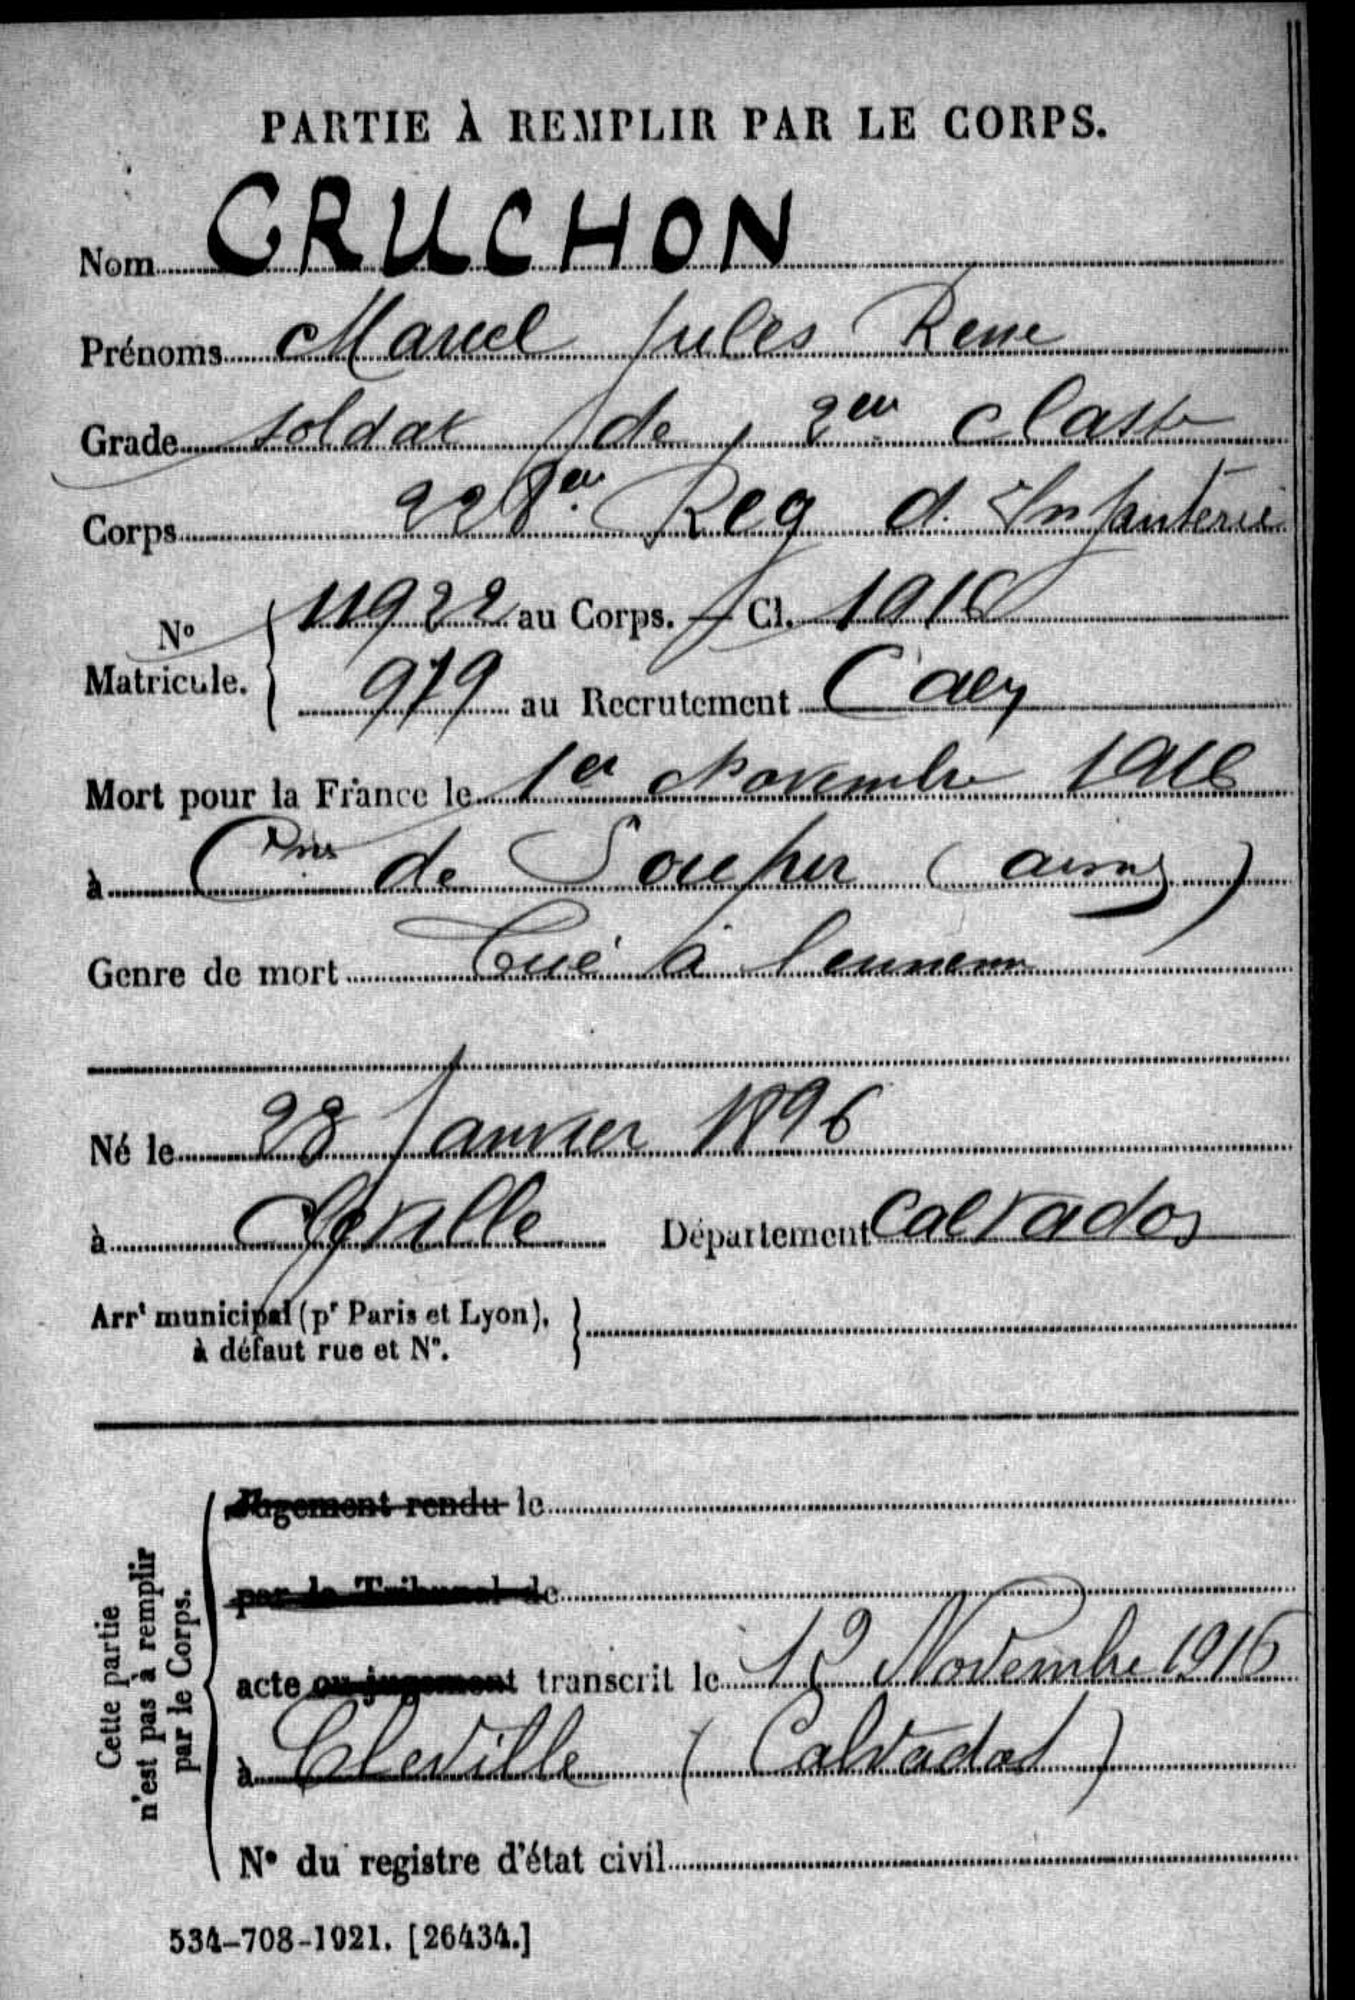 PARTIE À REMPLIR PAR LE CORPS.
Nom GRUCHON
Prénoms Marcel Jules Rene
Grade soldat de 2em classe
Corps 228em Reg d'Infanterie
No Matricule. 11922 au Corps. — Cl. 1916
979 au Recrutement Caen
Mort pour la France le 1er Novembre 1916
à de Soupir (aisne)
Genre de mort Tué à l'ennemi
Né le 28 Janvier 1896
à Cleville Département Calvados
Arrt municipal (pr Paris et Lyon),
à défaut rue et No.
Cette partie
n'est pas à remplir
par le Corps.
Jugement rendu le
par le Tribunal de
acte ou jugement transcrit le 12 Novembre 1916
à Cleville (Calvados)
No du registre d'état civil
534-708-1921. [26434.]